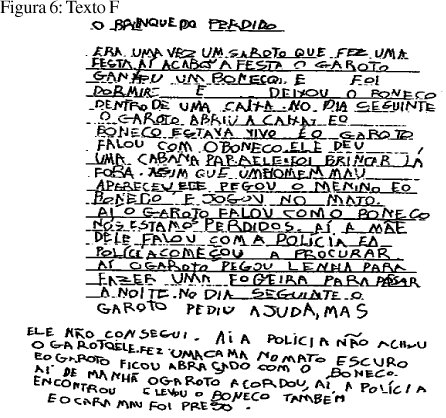 Figura 6: Texto F
O BRINQUEDO PERDIDO
ERA UMA VEZ UM GAROTO QUE FEZ UMA
FESTA AÍ ACABOU A FESTA O GAROTO
GANHOU UM BONECO. E FOI
DORMIR E DEIXOU O BONECO
DENTRO DE UMA CAIXA. NO DIA SEGUINTE
O GAROTO ABRIU A CAIXA E O
BONECO ESTAVA VIVO E O GAROTO
FALOU COM O BONECO. ELE DEU
UMA CABANA PARA ELE E FOI BRINCAR LÁ
FORA. ASIM QUE UM HOMEM MAU
APARECEU ELE PEGOU O MENINO E O
BONECO E JOGOU NO MATO.
AÍ O GAROTO FALOU COM O BONECO
NÓS ESTAMOS PERDIDOS. AÍ A MÃE
DELE FALOU COM A POLÍCIA E A
POLÍCIA COMEÇOU A PROCURAR
AÍ O GAROTO PEGOU LENHA PARA
FAZER UMA FOGEIRA PARA PASAR
A NOITE. NO DIA SEGUINTE O
GAROTO PEDIU AJUDA, MAS
ELE NÃO CONSEGUI. AÍ A POLÍCIA NÃO ACHOU
O GAROTO ELE FEZ UMA CAMA NO MATO ESCURO
E O GAROTO FICOU ABRAÇADO COM O BONECO.
AÍ DE MANHÃ O GAROTO ACORDOU, AÍ, A POLÍCIA
ENCONTROU E LEVOU O BONECO TAMBÉM
E O CARA MAU FOI PRESO.